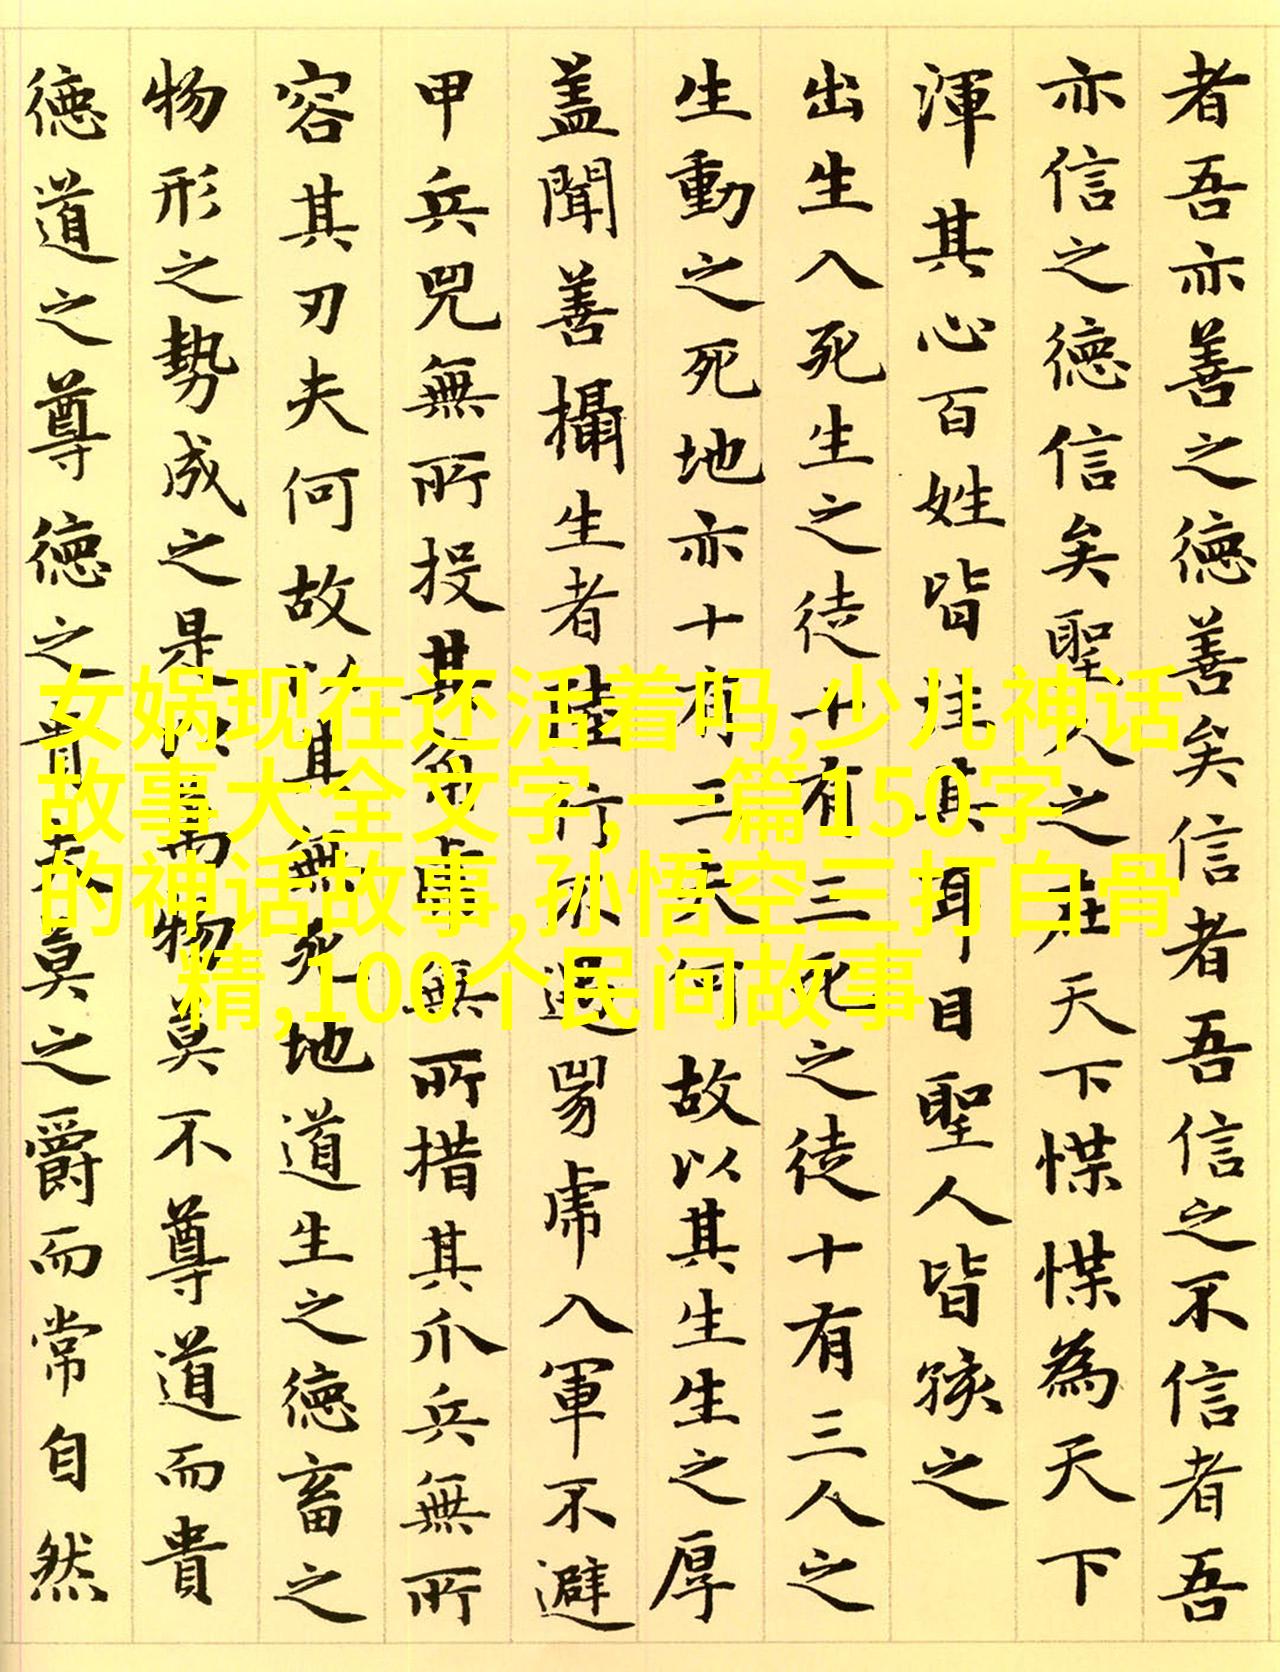 者吾亦善之徳善矣信者吾信之不信者吾
亦信之徳信矣聖人之在天下惵惵為天下
渾其心百姓皆注其耳目聖人皆孩之
出生入死生之徒十有三死之徒十有三人之
生動之死地亦十有三夫何故以其生生之厚
盖聞善攝生者陸行不遇兕虎入軍不避
甲兵兕無所投其角虎無所措其爪兵無所
容其刃夫何故以其無死地道生之徳畜之
物形之勢成之是以萬物莫不尊道而貴
徳道之尊徳之貴夫莫之爵而常自然
女娲现在还活着吗,少儿神话
故事大全文字,一篇150字
的神话故事,孙悟空三打白骨
精,100个民间故事